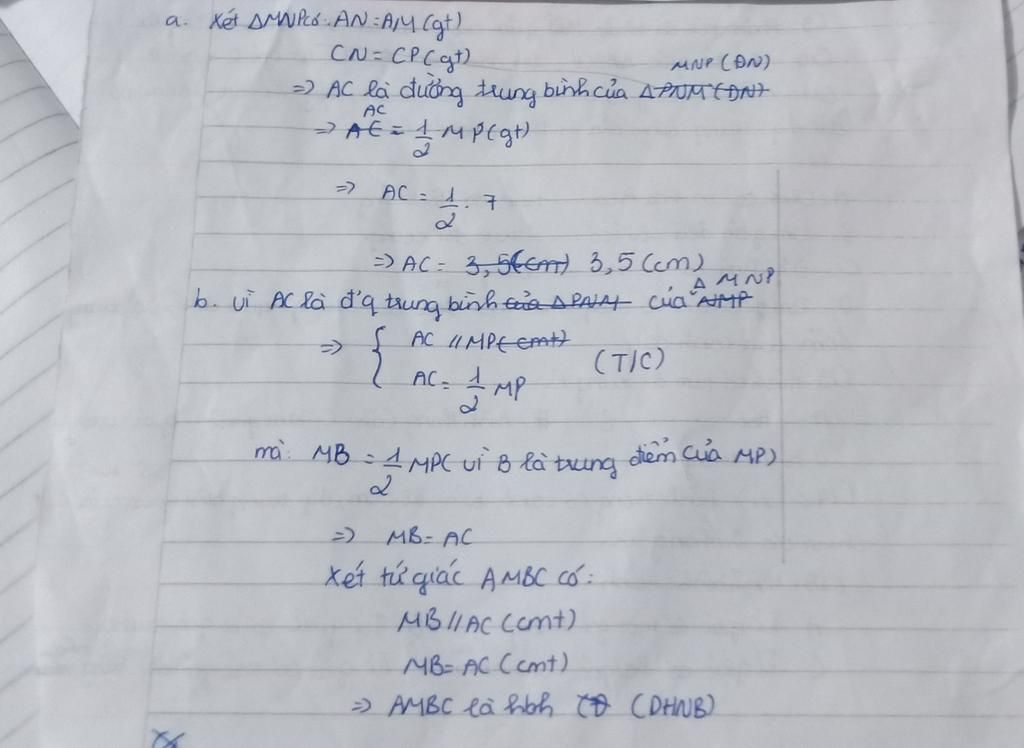 a. Xét ΔMNP có: AN = AM (gt)
CN = CP (gt)
MNP (ĐN)
=> AC là đường trung bình của ΔPNM (ĐN)
AC
=> AC = 1/2 MP (gt)
=> AC = 1/2 . 7
=> AC = 3,5 (cm) 3,5 (cm)
Δ MNP
b. vì AC là đ'g trung bình của ΔPNM của NMP
=> { AC // MP (cmt)
AC = 1/2 MP (T/C)
mà: MB = 1/2 MP ( vì B là trung điểm của MP)
=> MB = AC
Xét tứ giác AMBC có:
MB // AC (cmt)
MB = AC (cmt)
=> AMBC là hbh (DHNB)